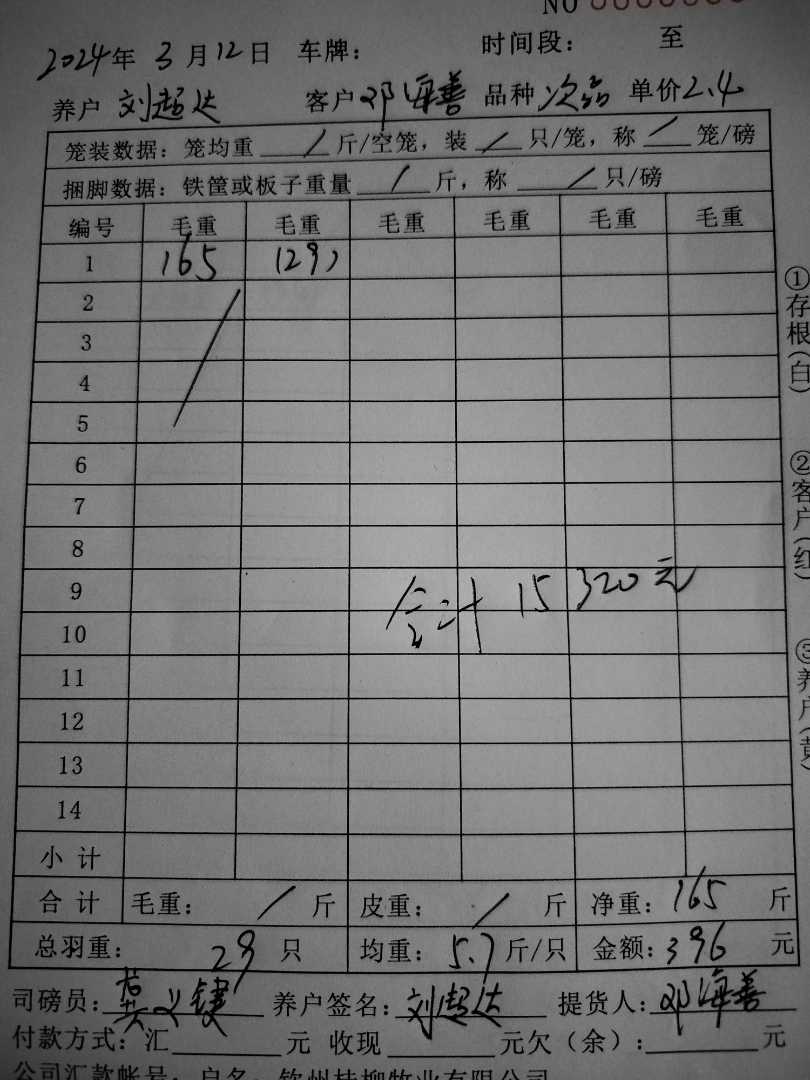 NO
2024年 3月12日 车牌： 时间段： 至
养户 刘超达 客户 邓海善 品种 次品 单价2.4
笼装数据：笼均重 / 斤/空笼，装 / 只/笼，称 / 笼/磅
捆脚数据：铁筐或板子重量 / 斤，称 / 只/磅
编号 毛重 毛重 毛重 毛重 毛重 毛重
1 165 (29)
2
3
4
5
6
7
8
9
合计 15320元
10
11
12
13
14
小计
合计 毛重： / 斤 皮重： / 斤 净重：165 斤
总羽重： 29 只 均重：5.7斤/只 金额：396 元
司磅员：莫义键 养户签名：刘超达 提货人：邓海善
付款方式：汇 元 收现 元欠（余）： 元
公司汇款帐号：户名：钦州桂柳牧业有限公司
①存根(白)
②客户(红)
③养户(黄)